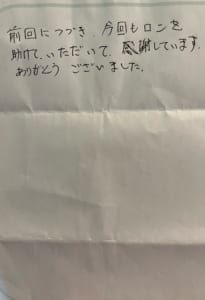 前回につづき、今回もロンを
助けて、いただいて、感謝しています。
ありがとう ございました。